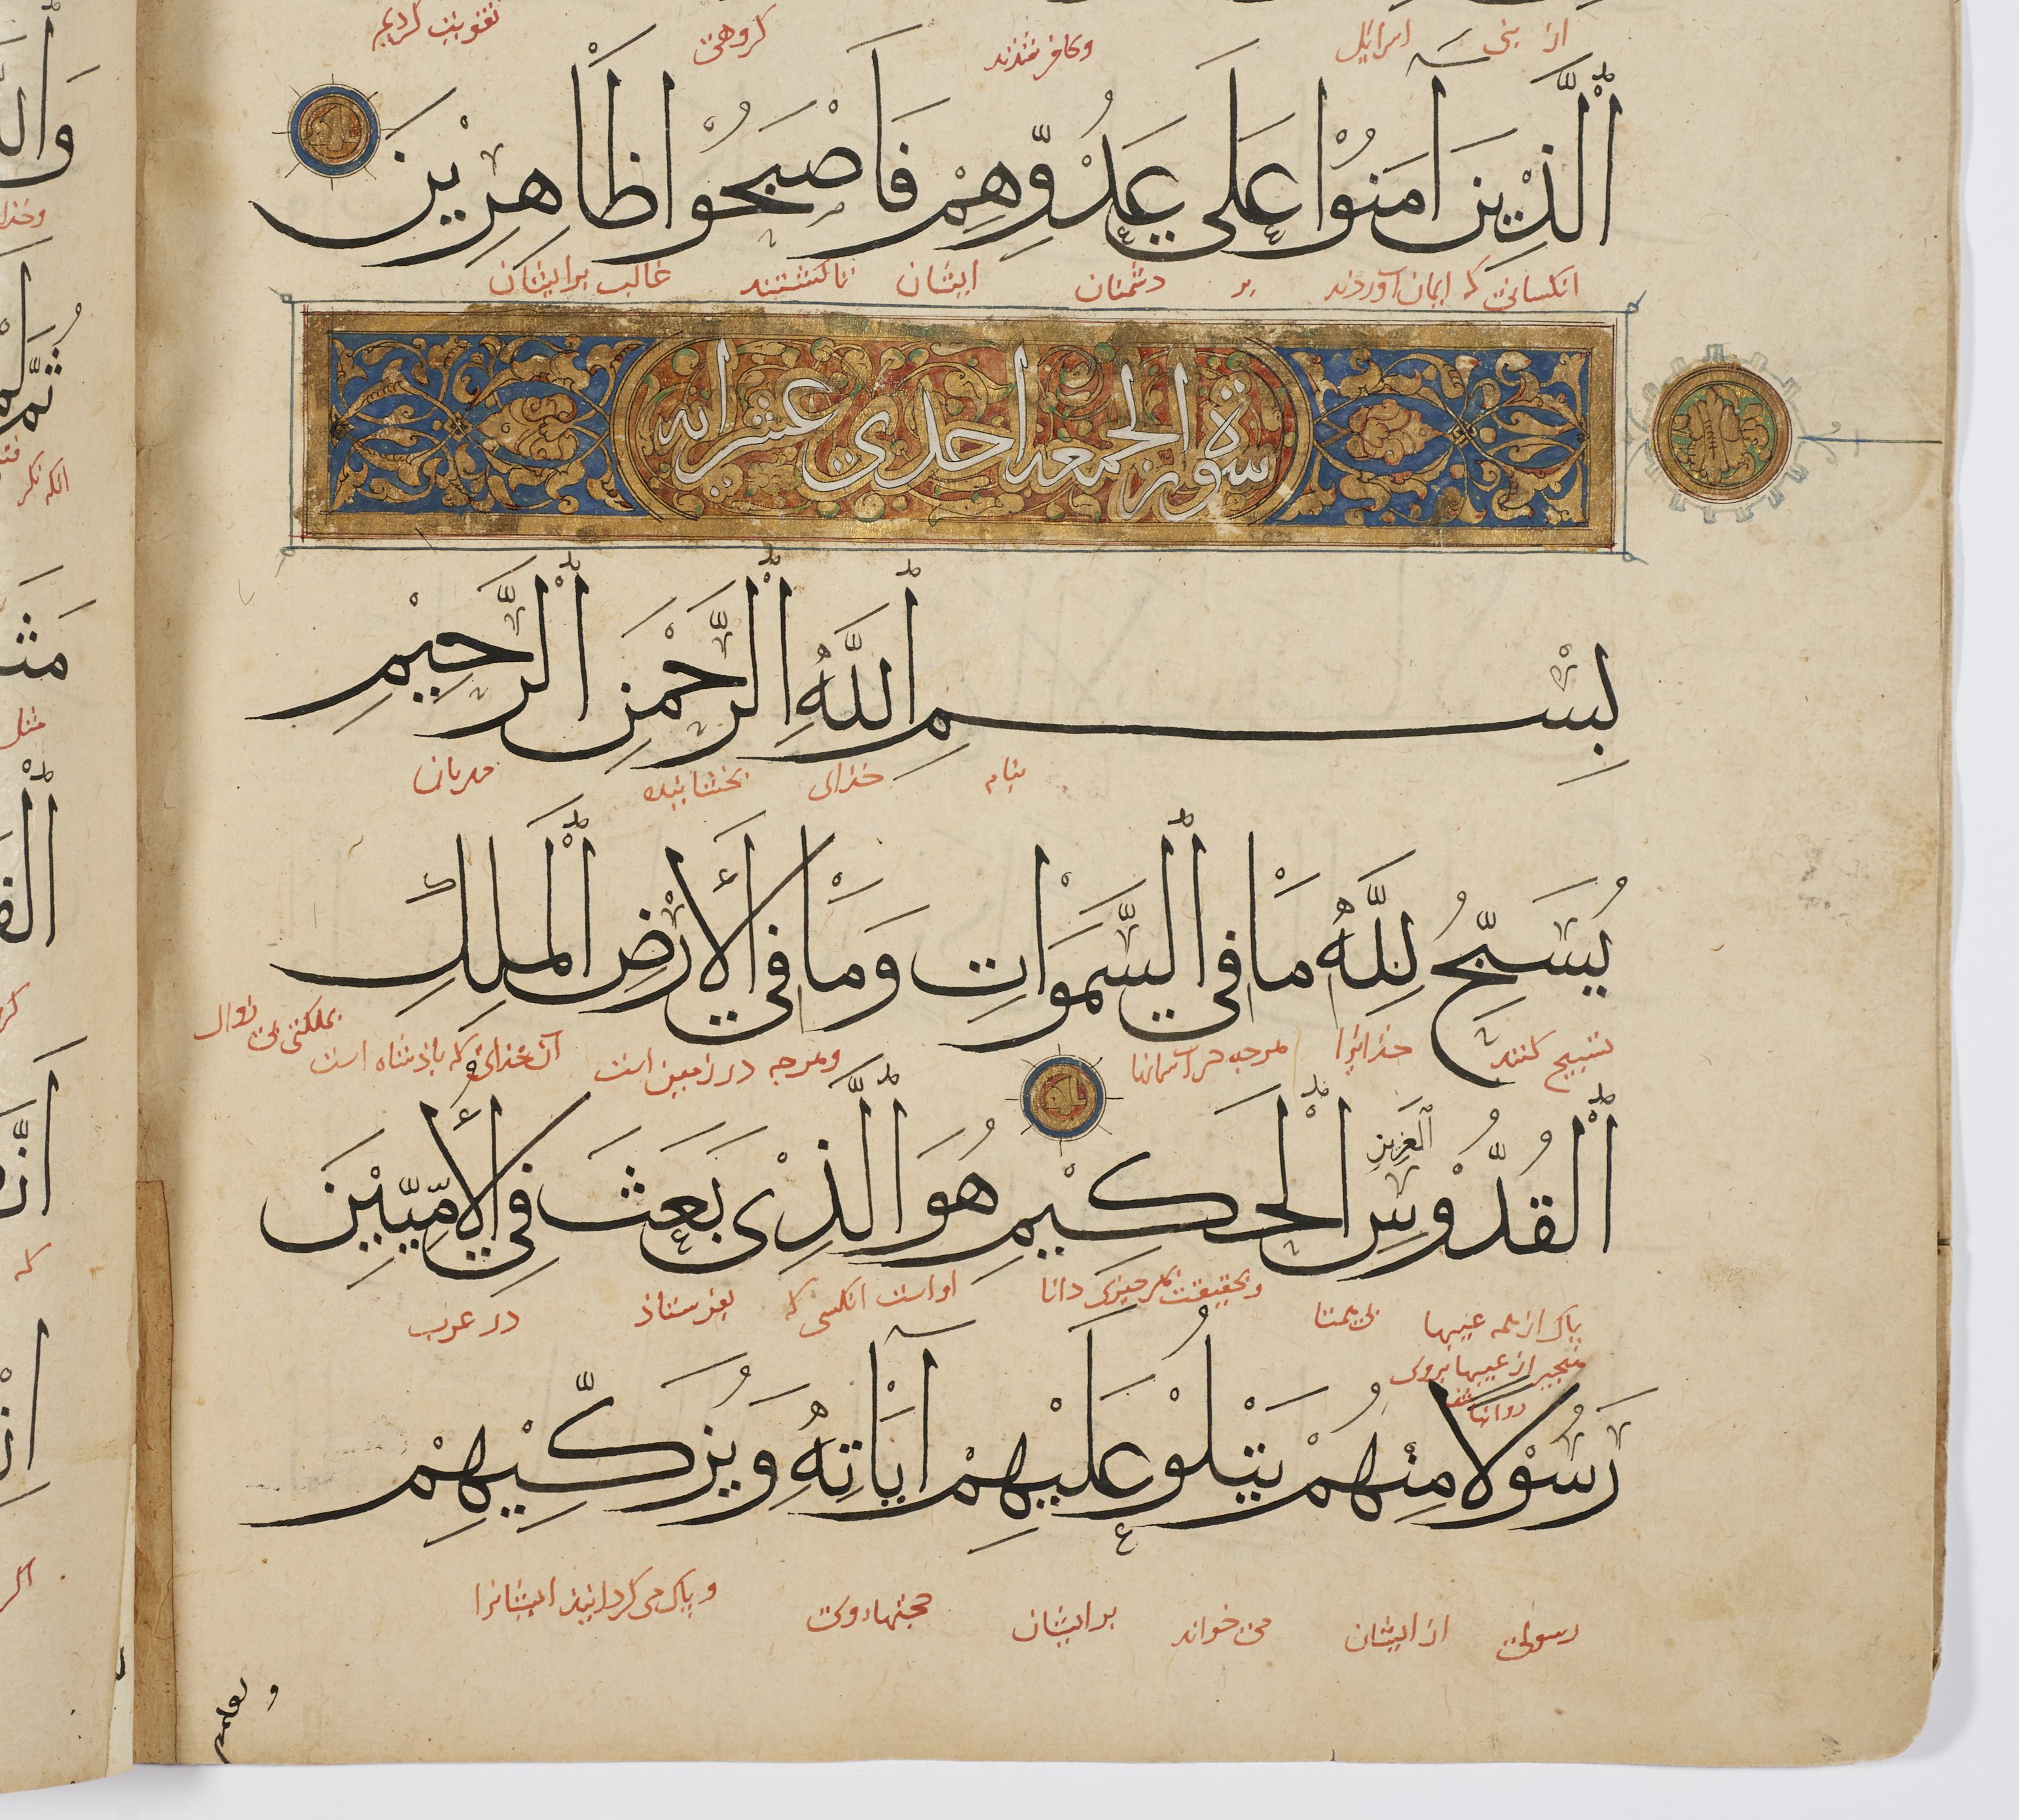 از بنی اسرائیل وکافر شدند کروهی تقویت کردیم
اَلَّذِيْنَ آمَنُوْا عَلَى عَدُوِّهِمْ فَاَصْبَحُوا ظَاهِرِيْنَ
انکسانی که ایمان آوردند بر دشمنان ایشان تا کشتند غالب بر ایشان
سورة الجمعة احدى عشر اية
بِسْمِ اللَّهِ الرَّحْمٰنِ الرَّحِيْمِ
بنام خدای بخشاینده مهربان
يُسَبِّحُ لِلَّهِ مَا فِي السَّمَوَاتِ وَمَا فِي الْأَرْضِ الْمَلِكِ
تسبیح کنند خدایرا هرچه در آسمانها وهرچه در زمین است آن خدای که پادشاه است بملکتی بی زوال
الْقُدُّوْسِ الْعَزِيْزِ الْحَكِيْمِ هُوَ الَّذِىْ بَعَثَ فِي الْأُمِّيِّيْنَ
پاک از همه عیبها بی همتا وبحقیقت هر چیزی دانا او است انکسی که بفرستاذ در عرب
رَسُوْلًا مِنْهُمْ يَتْلُوْ عَلَيْهِمْ آيَاتِهِ وَيُزَكِّيْهِمْ
رسولی از ایشان می خواند بر ایشان حجتهاء وی و پاک می کرداند ایشانرا
و يعلمهم